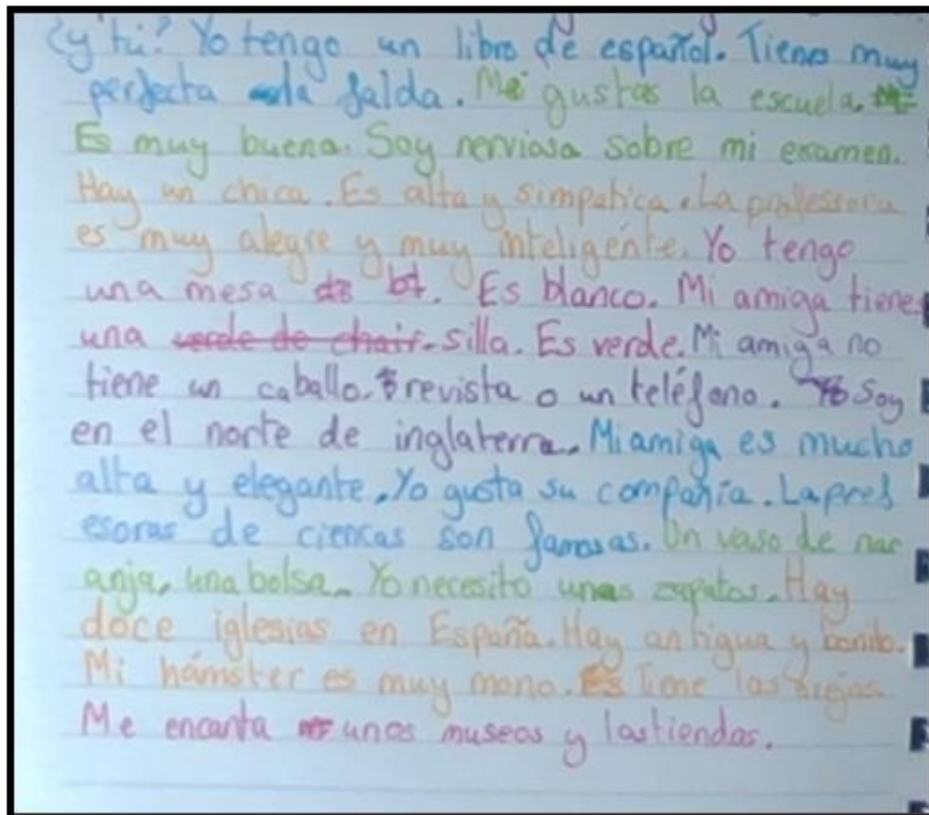 ¿y tú? Yo tengo un libro de español. Tienes muy
perfecta la falda. Me gustas la escuela.
Es muy buena. Soy nerviosa sobre mi examen.
Hay un chica. Es alta y simpática. La professora
es muy alegre y muy inteligente. Yo tengo
una mesa. Es blanco. Mi amiga tienes
una verde de chair. silla. Es verde. Mi amiga no
tiene un caballo. revista o un teléfono. Soy
en el norte de inglaterra. Mi amiga es mucho
alta y elegante. Yo gusta su compañia. La prof
esoras de ciencas son famosas. Un vaso de nar
anja, una bolsa. Yo necesito unas zapatos. Hay
doce iglesias en España. Hay antigua y bonito.
Mi hámster es muy mono. Es Tiene las orejas
Me encanta unos museos y las tiendas.